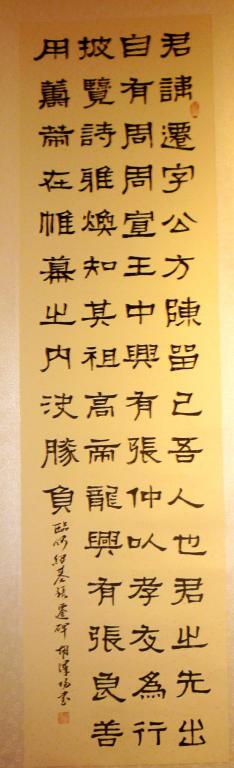 君諱遷字公方陳留己吾人也君之先出
自有周周宣王中興有張仲以孝友為行
披覽詩雅煥知其祖高帝龍興有張良善
用籌策在帷幕之内決勝負